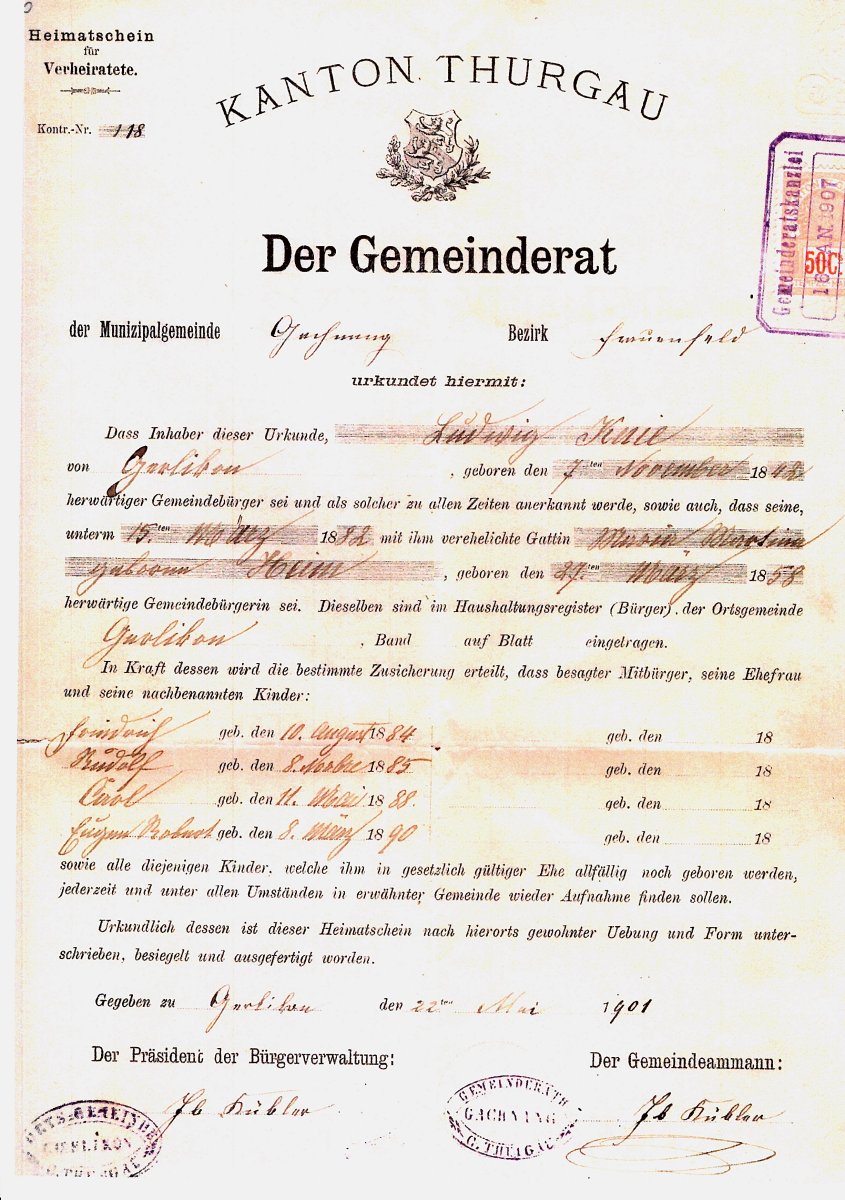 Heimatschein
für
Verheiratete.
Kontr.-Nr. 118
KANTON THURGAU
Gemeinderatskanzlei
16 JAN 1907
50C.
Der Gemeinderat
der Munizipalgemeinde Gachnang Bezirk Frauenfeld
urkundet hiermit:
Dass Inhaber dieser Urkunde, Ludwig
von Gerlikon, geboren den 7.ten November 1842
herwärtiger Gemeindebürger sei und als solcher zu allen Zeiten anerkannt werde, sowie auch, dass seine,
unterm 15.ten März 1882 mit ihm verehelichte Gattin Maria Martina
geborene Heim, geboren den 27.ten März 1858
herwärtige Gemeindebürgerin sei. Dieselben sind im Haushaltungsregister (Bürger) der Ortsgemeinde
Gerlikon, Band auf Blatt eingetragen.
In Kraft dessen wird die bestimmte Zusicherung erteilt, dass besagter Mitbürger, seine Ehefrau
und seine nachbenannten Kinder:
Friedrich geb. den 10. August 1884 geb. den 18
Rudolf geb. den 8. 1885 geb. den 18
Carl geb. den 11. Mai 1888. geb. den 18
Eugen Robert geb. den 8. März 1890 geb. den 18
sowie alle diejenigen Kinder, welche ihm in gesetzlich gültiger Ehe allfällig noch geboren werden,
jederzeit und unter allen Umständen in erwähnter Gemeinde wieder Aufnahme finden sollen.
Urkundlich dessen ist dieser Heimatschein nach hierorts gewohnter Uebung und Form unter-
schrieben, besiegelt und ausgefertigt worden.
Gegeben zu Gerlikon den 22ten Mai 1901
Der Präsident der Bürgerverwaltung: Der Gemeindeammann:
Jb Kübler Jb Kübler
ORTS-GEMEINDE
GERLIKON
C. THURGAU
GEMEINDERATH
GACHNANG
C. THURGAU